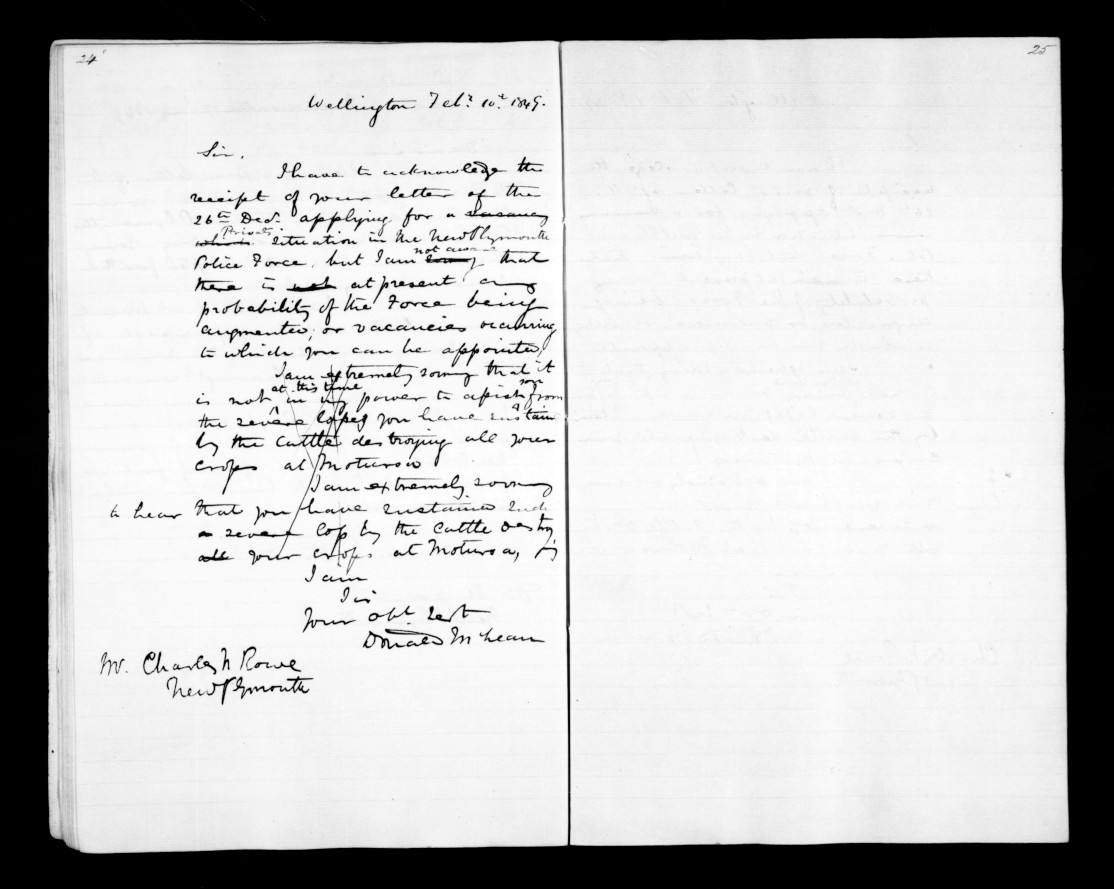 24
25
Wellington Feby. 10th. 1849.
Sir.
I have to acknowledge the
receipt of your letter of the
26th Decr. applying for a vacancy
Privates
which situation in the New Plymouth
not aware
Police Force, but I am sorry that
there is not at present any
probability of the Force being
augmented, or vacancies occurring
to which you can be appointed,
I am extremely sorry that it
at this time you
is not in my power to assist from
the severe loss you have sustain
by the Cattle destroying all your
crops at Moturoa
I am extremely sorry
to hear that you have sustained such
a severe loss by the Cattle destroy
ing
all your crops at Moturoa,
I am
Sir
Your obt. Sert
Donald McLean
Mr. Charles N Rowe
New Plymouth